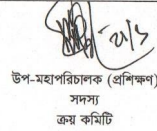 উপ-মহাপরিচালক (প্রশিক্ষণ)
সদস্য
ক্রয় কমিটি